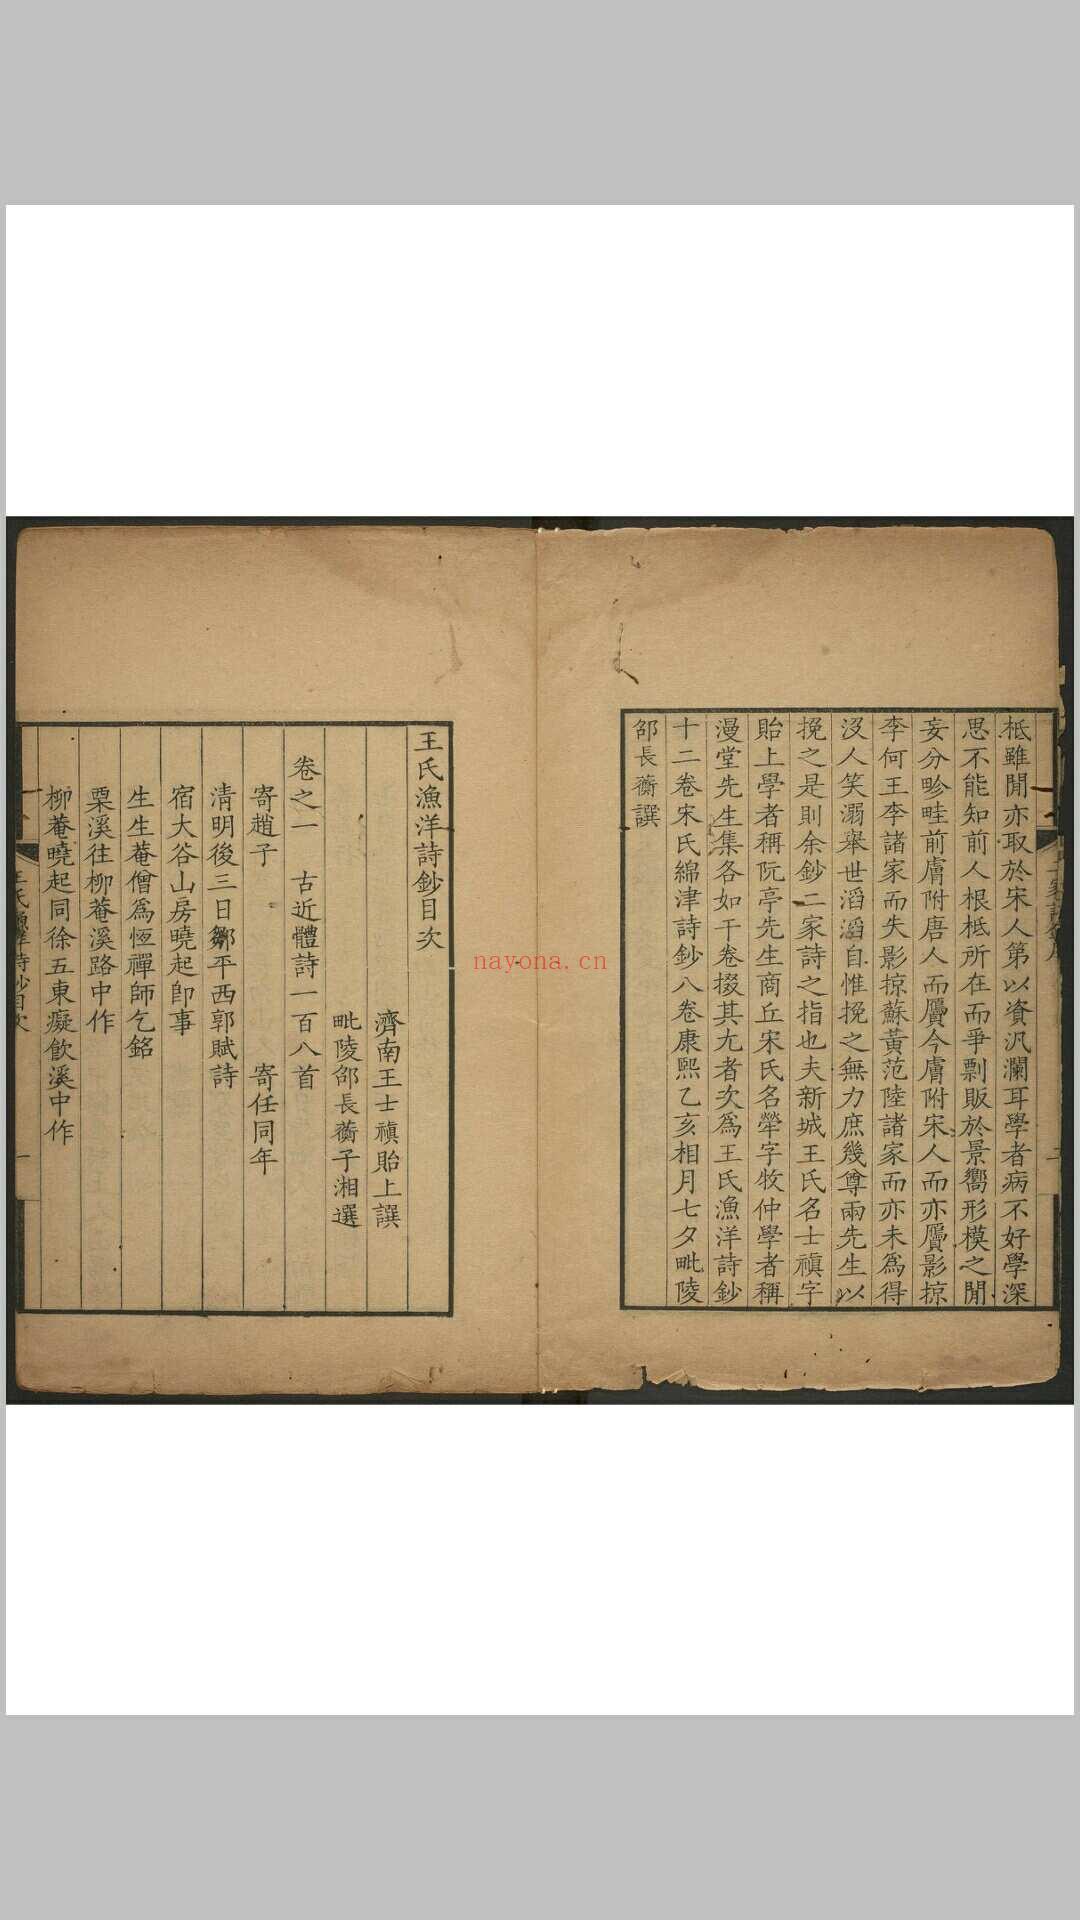 柢雖閒亦取於宋人第以資汎瀾耳學者病不好學深
思不能知前人根柢所在而爭剽販於景嚮形模之閒
妄分畛畦前膚附唐人而贗今膚附宋人而亦贗影掠
李何王李諸家而失影掠蘇黃范陸諸家而亦未爲得
沒人笑溺舉世滔滔自惟挽之無力庶幾尊兩先生以
挽之是則余鈔二家詩之指也夫新城王氏名士禛字
貽上學者稱阮亭先生商丘宋氏名犖字牧仲學者稱
漫堂先生集各如干卷掇其尤者次爲王氏漁洋詩鈔
十二卷宋氏綿津詩鈔八卷康熙乙亥相月七夕毗陵
邵長蘅譔
王氏漁洋詩鈔目次
濟南王士禛貽上譔
毗陵邵長蘅子湘選
卷之一 古近體詩一百八首
寄趙子 寄任同年
清明後三日鄒平西郭賦詩
宿大谷山房曉起卽事
生生菴僧爲恆禪師乞銘
栗溪往柳菴溪路中作
柳菴曉起同徐五東癡飮溪中作
王氏漁洋詩鈔目次
一
nayona.cn